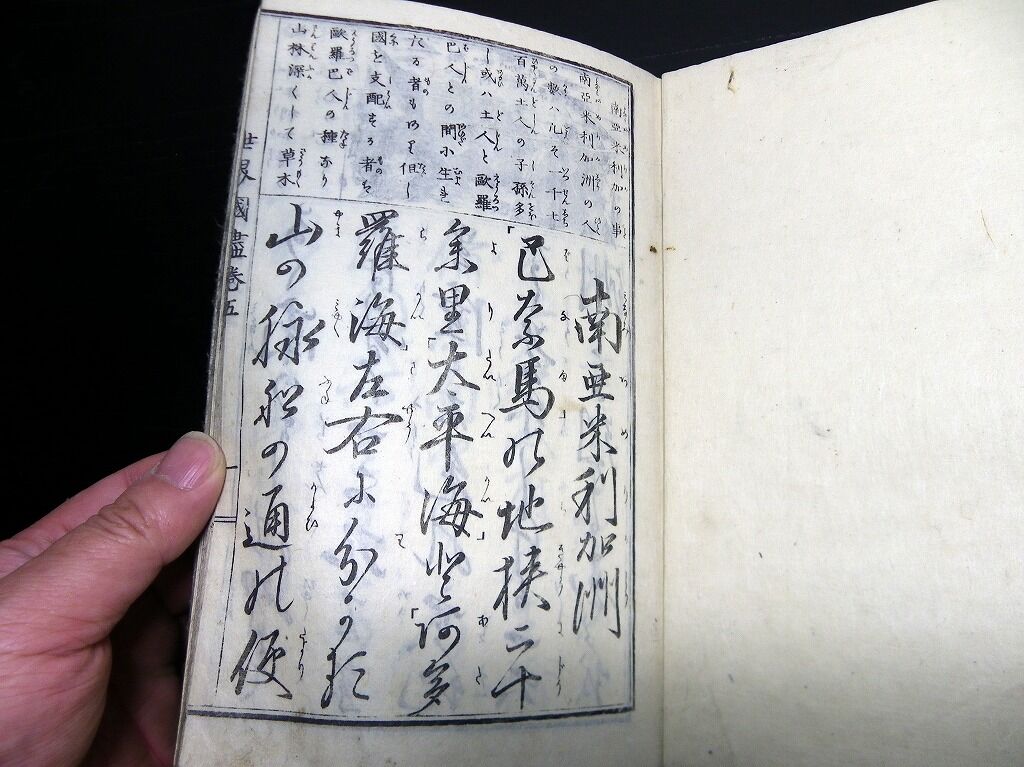 南亜米利加の事
南亜米利加洲の人
の数ハ凡そ一千七
百萬土人の子孫多
し或ハ土人と歐羅
巴人との間小生を
たる者もあり但し
國を支配する者ハ
歐羅巴人の種なり
山林深くして草木
南亜米利加洲
「巴奈馬の地挟二十
余里「太平海」と「阿多
羅海」左右に分かる
山の脉船の通の便
世界國盡巻五